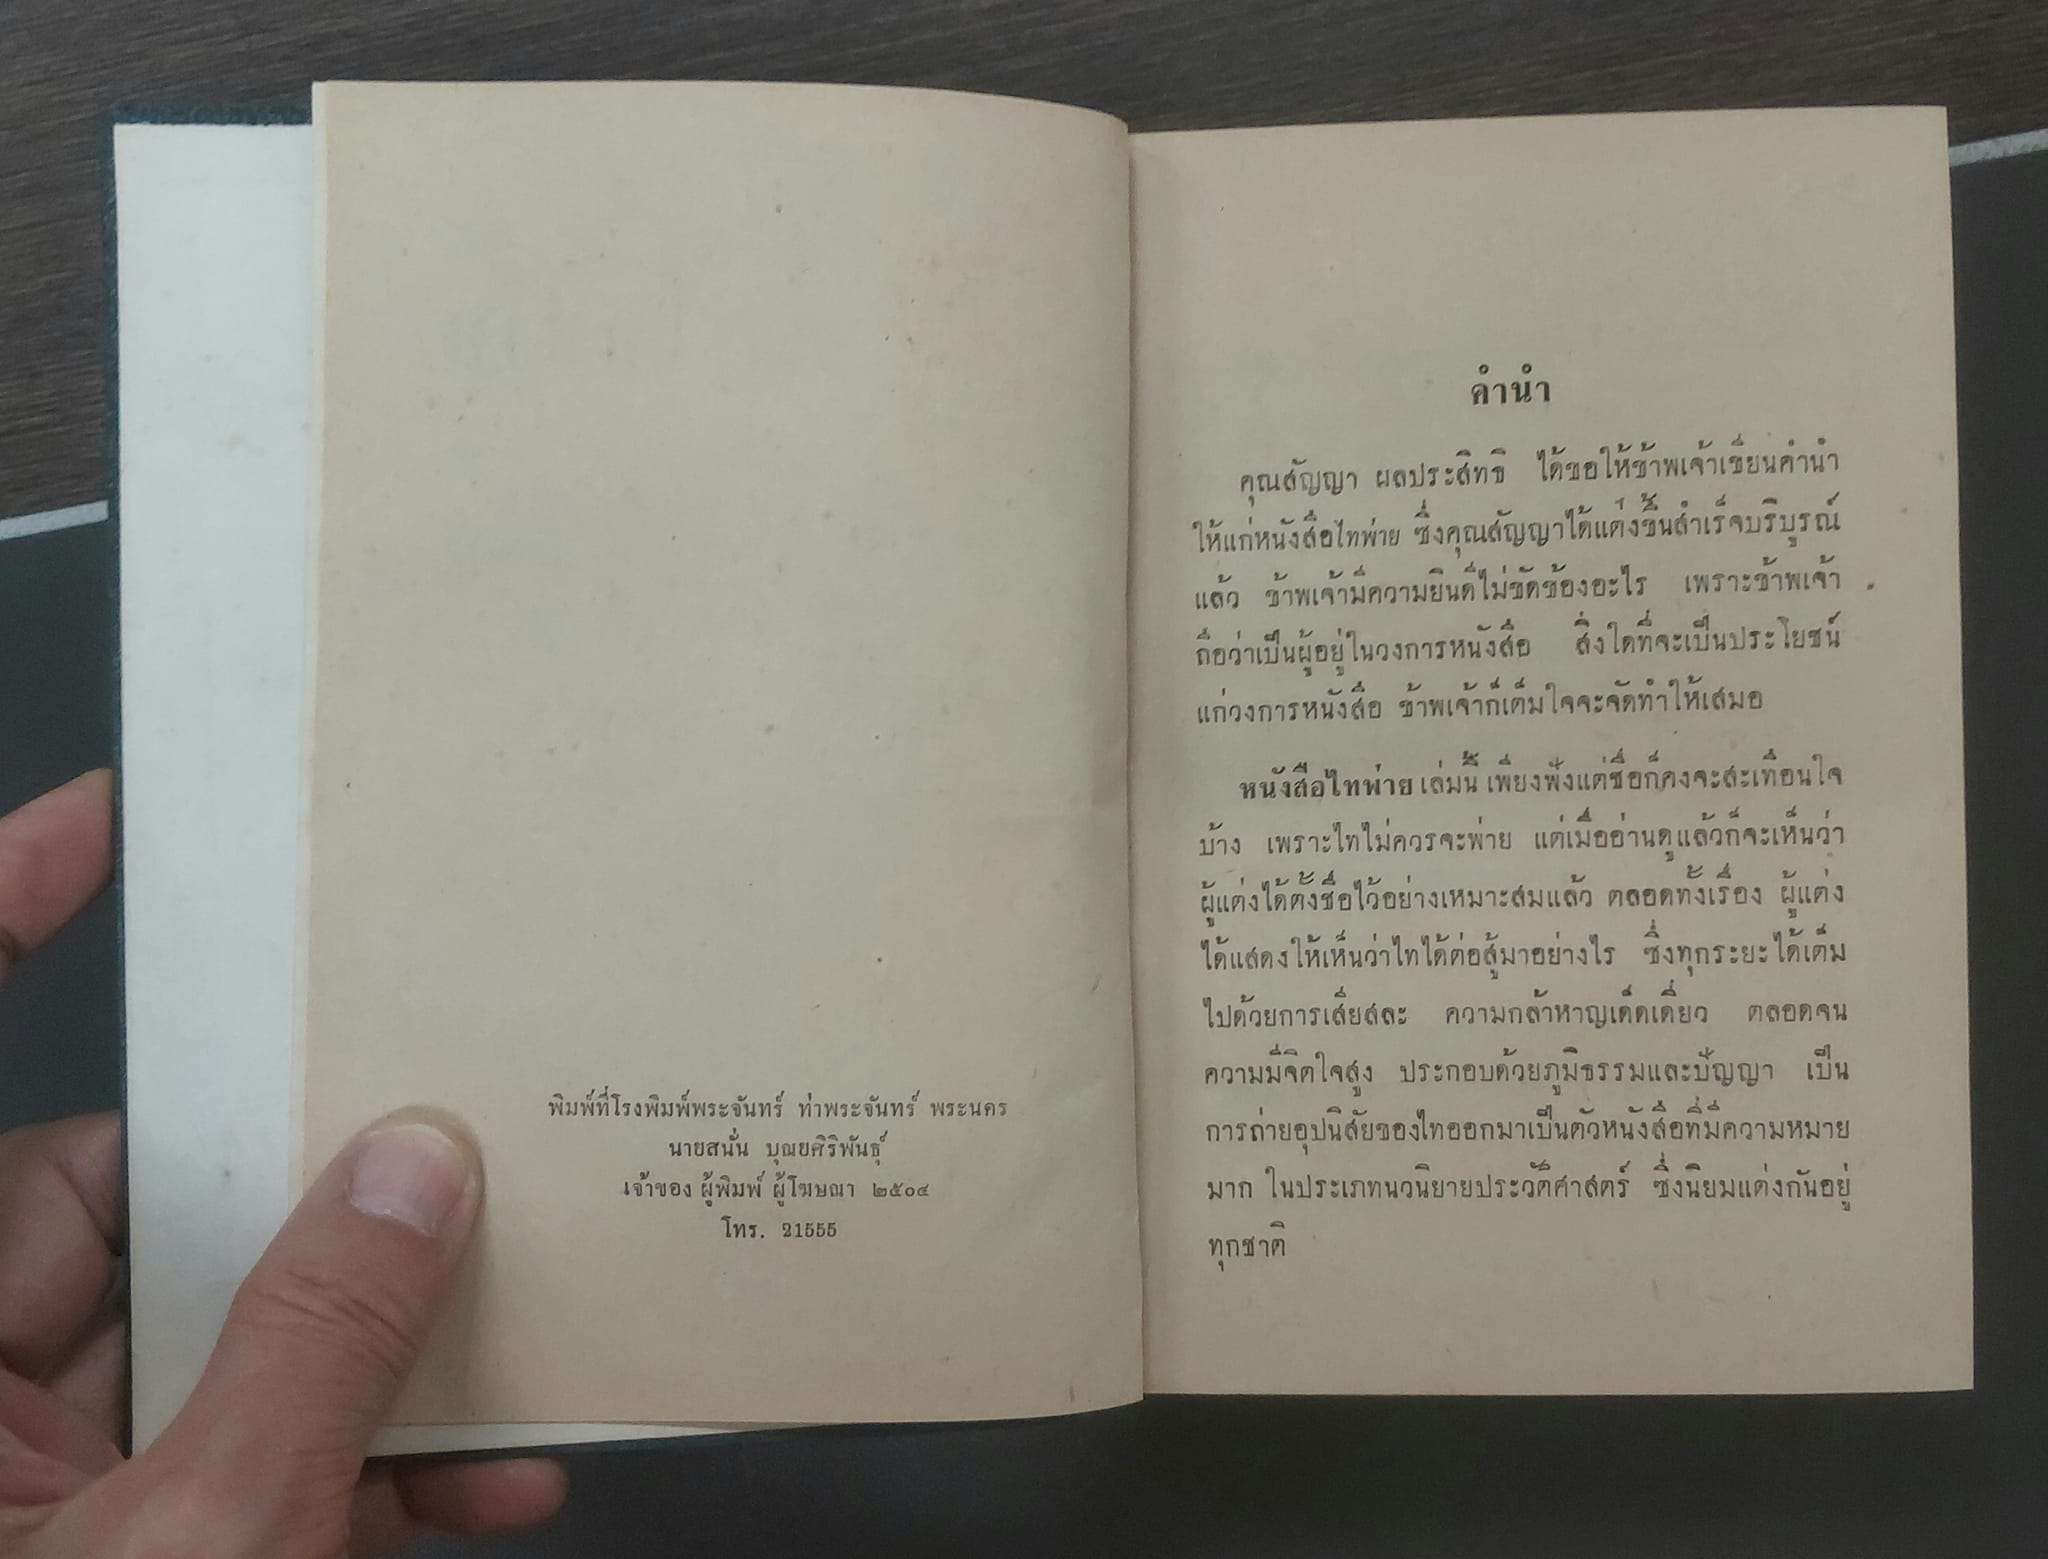 พิมพ์ที่โรงพิมพ์พระจันทร์ ท่าพระจันทร์ พระนคร
นายสนั่น บุณยศิริพันธุ์
เจ้าของ ผู้พิมพ์ ผู้โฆษณา ๒๕๐๔
โทร. 21555
คำนำ
คุณสัญญา ผลประสิทธิ ได้ขอให้ข้าพเจ้าเขียนคำนำ
ให้แก่หนังสือไทพ่าย ซึ่งคุณสัญญาได้แต่งขึ้นสำเร็จบริบูรณ์
แล้ว ข้าพเจ้ามีความยินดีไม่ขัดข้องอะไร เพราะข้าพเจ้า
ถือว่าเป็นผู้อยู่ในวงการหนังสือ สิ่งใดที่จะเป็นประโยชน์
แก่วงการหนังสือ ข้าพเจ้าก็เต็มใจจะจัดทำให้เสมอ
หนังสือไทพ่าย เล่มนี้ เพียงฟังแต่ชื่อก็คงจะสะเทือนใจ
บ้าง เพราะไทไม่ควรจะพ่าย แต่เมื่ออ่านดูแล้วก็จะเห็นว่า
ผู้แต่งได้ตั้งชื่อไว้อย่างเหมาะสมแล้ว ตลอดทั้งเรื่อง ผู้แต่ง
ได้แสดงให้เห็นว่าไทได้ต่อสู้มาอย่างไร ซึ่งทุกระยะได้เต็ม
ไปด้วยการเสียสละ ความกล้าหาญเด็ดเดี่ยว ตลอดจน
ความมีจิตใจสูง ประกอบด้วยภูมิธรรมและปัญญา เป็น
การถ่ายอุปนิสัยของไทออกมาเป็นตัวหนังสือที่มีความหมาย
มาก ในประเภทนวนิยายประวัติศาสตร์ ซึ่งนิยมแต่งกันอยู่
ทุกชาติ